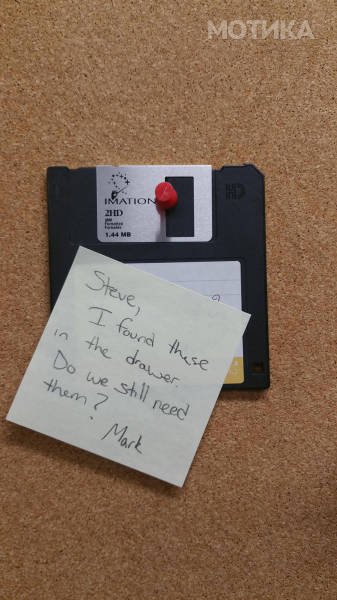 МОТИКА
IMATION
2HD
IBM
Formatted
Formatée
1.44 MB
HD
Steve,
I found these
in the drawer.
Do we still need
them?
Mark